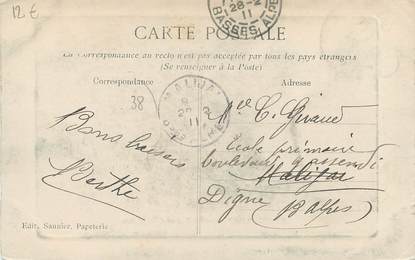 12 €
28-2
11
BASSES-ALPES
CARTE POSTALE
La Correspondance au recto n'est pas acceptée par tous les pays étrangers
(Se renseigner à la Poste)
Correspondance
Adresse
38
MALIJAI
11
Mlle C. Giraud
école primaire
boulevard Gassendi
Malijai
Digne
(B Alpes)
Bons baisers
Berthe
Edit. Saunier, Papeterie